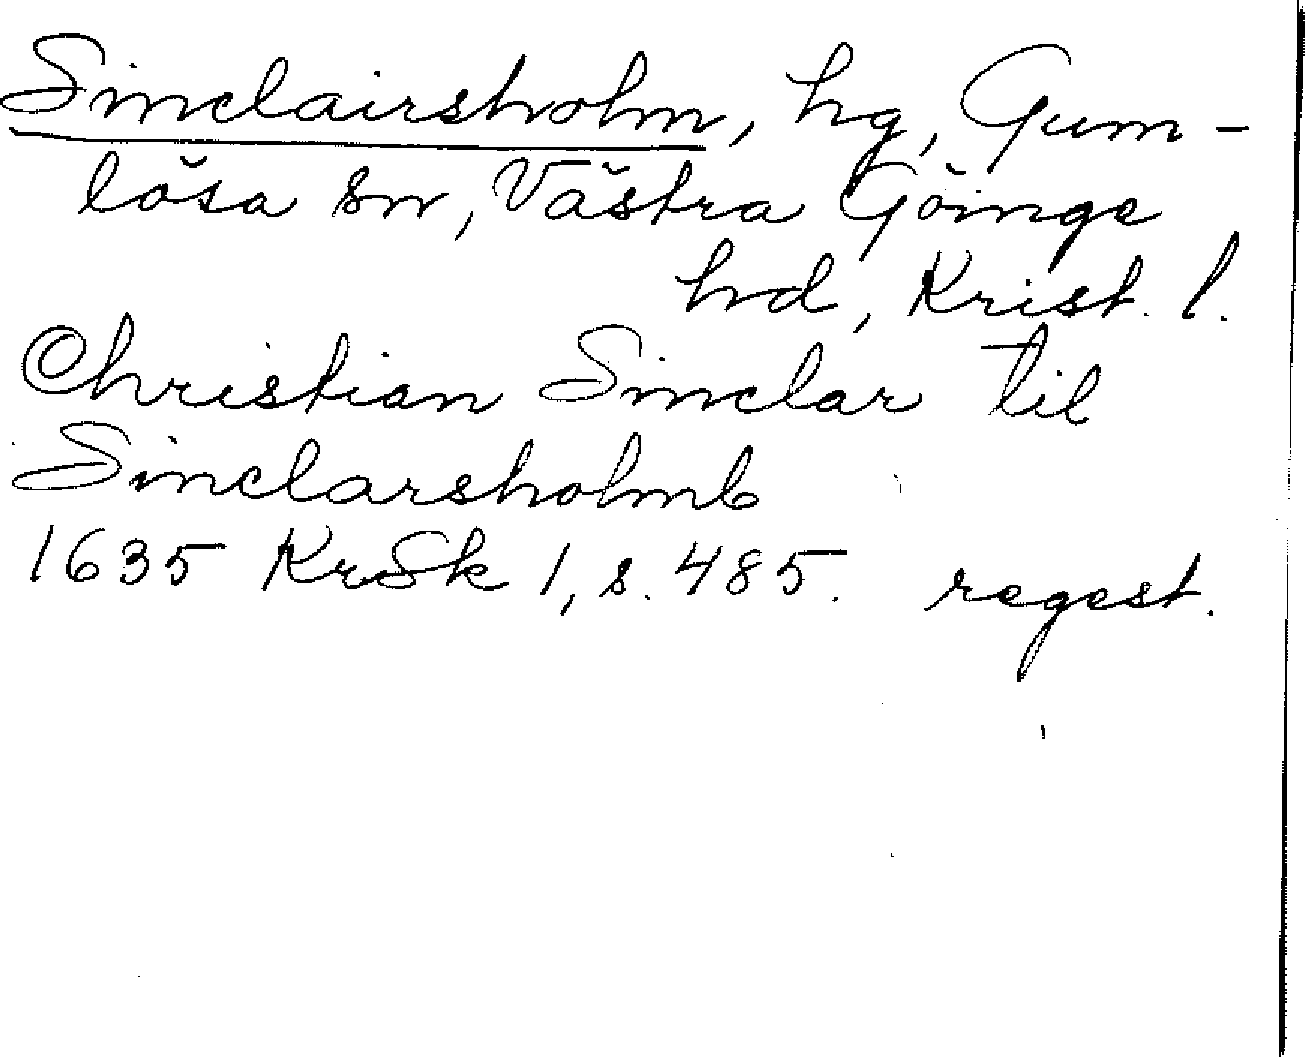 Sinclairsholm, hg, Gum-
lösa sn, Västra Göinge
hd, Krist. l.
Christian Sinclar til
Sinclarsholmb
1635 KrSk 1, s. 485. regest.